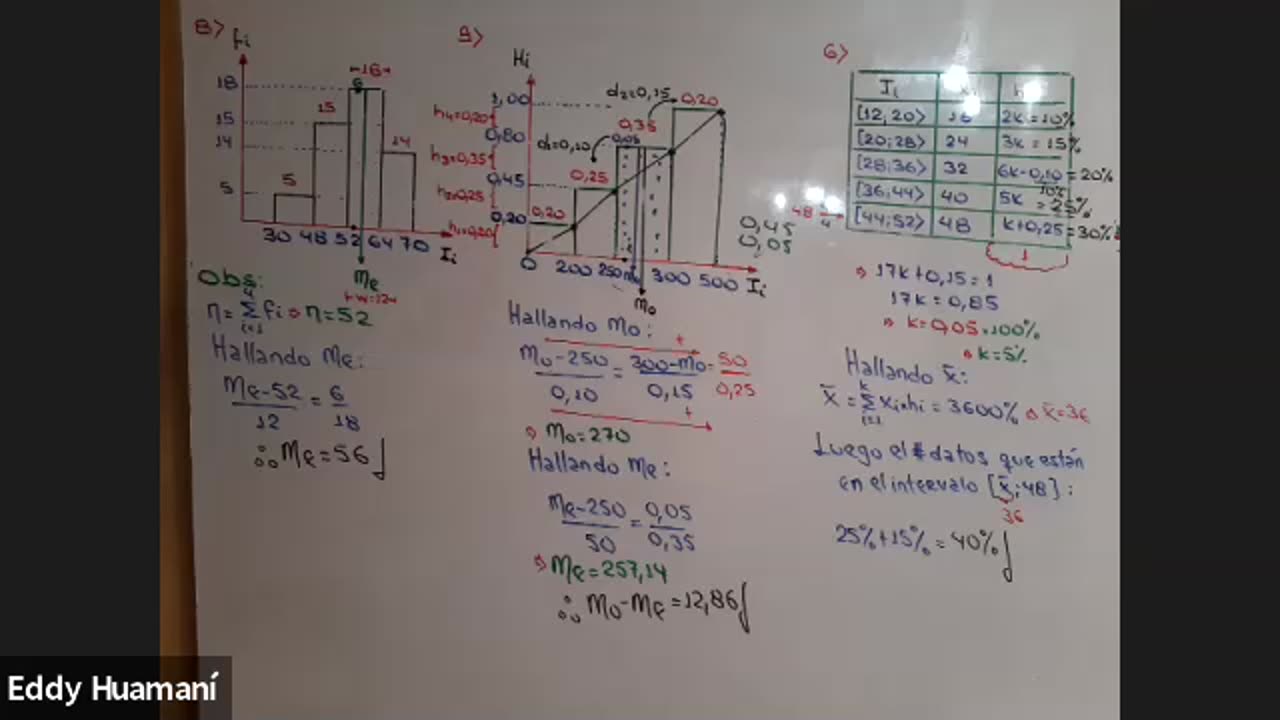 8>
fi
18
15
14
5
5
15
6
16
14
30 48 52 64 70 Ii
Me
Obs:
n = Σ fi ⇒ n = 52
4
i=1
Hallando Me:
Me-52 = 6
12 18
∴ Me = 56
9>
Hi
1,00
0,80
0,45
0,20
h4=0,20
h3=0,35
h2=0,25
h1=0,20
0,20
0,25
d1=0,10
0,05
0,35
d2=0,15
0,20
0 200 250 300 500 Ii
Mo
0,45
0,05
Hallando Mo:
Mo-250 = 300-Mo = 50
0,10 0,15 0,25
⇒ Mo = 270
Hallando Me:
Me-250 = 0,05
50 0,35
⇒ Me = 257,14
∴ Mo-Me = 12,86
6>
Ii xi
[12,20> 16 2k = 10%
[20;28> 24 3k = 15%
[28;36> 32 6k-0,10 = 20%
[36;44> 40 5k = 25%
[44;52> 48 k+0,25 = 30%
48
4
1
⇒ 17k+0,15=1
17k = 0,85
⇒ k = 0,05×100%
⇒ k = 5%
Hallando x̄:
x̄ = Σ xi×hi = 3600% ⇒ x̄ = 36
k
i=1
Luego el # datos que están
en el intervalo [x̄;48]:
36
25%+15% = 40%
Eddy Huamaní